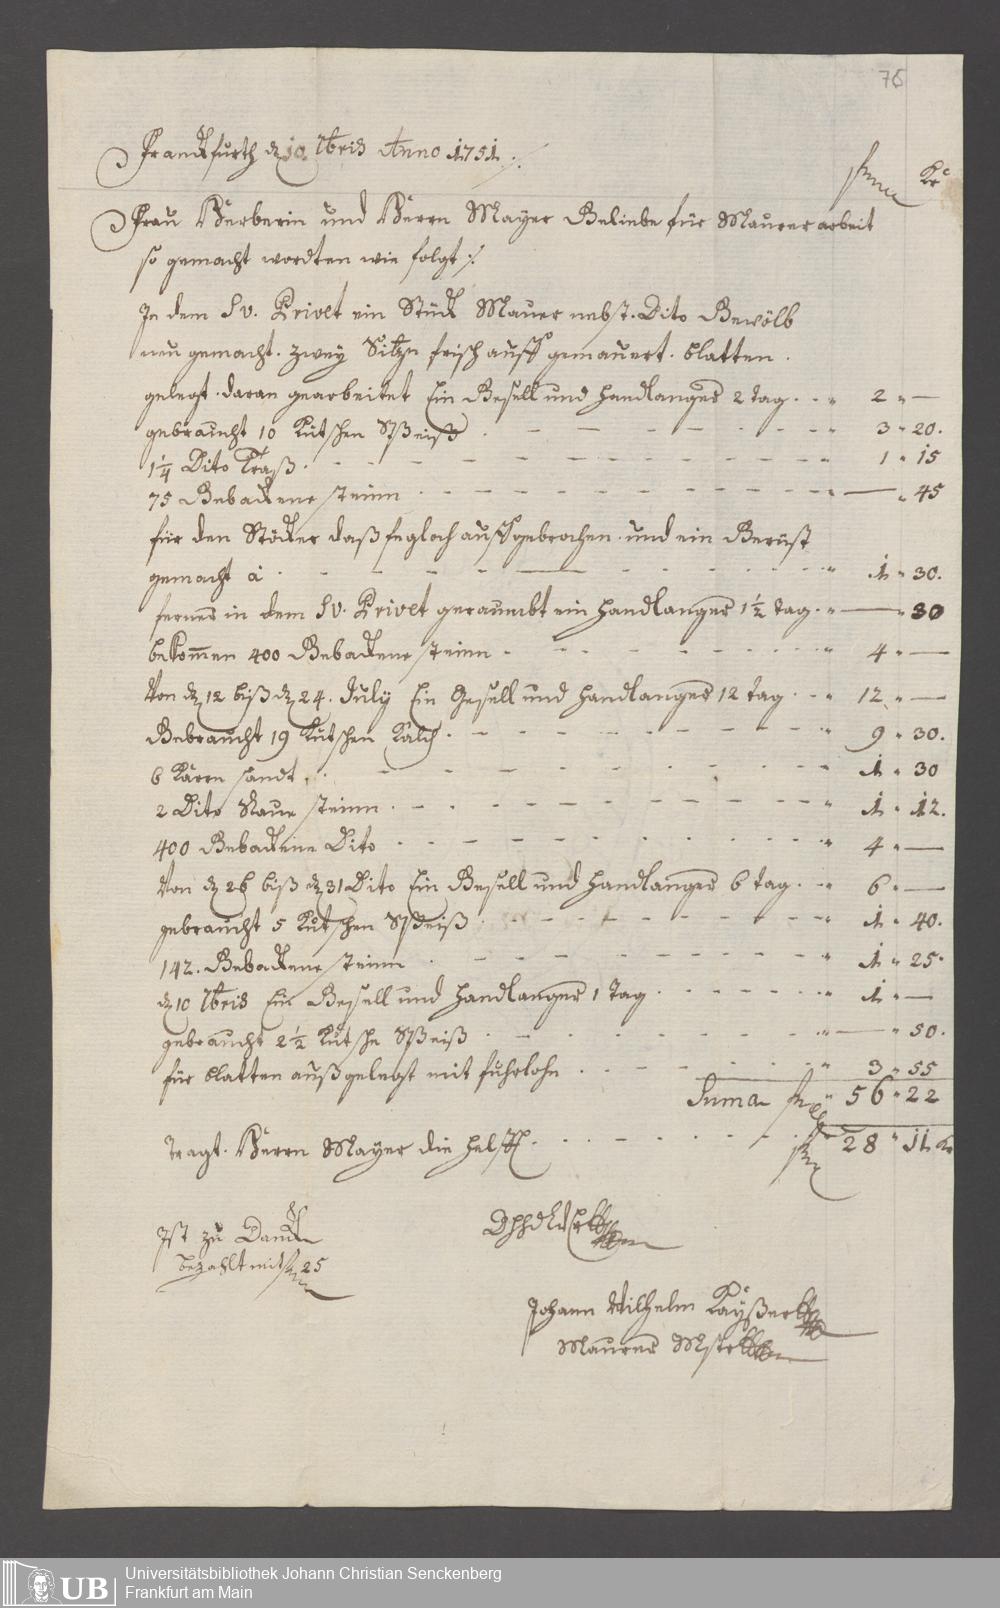 76
Franckfurth dℨ 10 7bris Anno 1751
Kr
Frau Herberin und Herrn Mayer Beliebe für Maurer arbeit
so gemacht wordten wie folgt
In dem S.v. Privet ein Stück Mauer nebst. Dito Gewölb
neu gemacht. zwey Sitze frisch auff gemauert. blatten.
gelegt. daran gearbeitet Ein Gesell und Handlanger 2 tag 2 „ —
gebraucht 10 Kütschen Speiß 3 „ 20.
1¼ Dito Traß 1 „ 15
75 Gebackene steinn — „ 45
für den Stöcker daß fegloch auff gebrochen. und ein Gerüst
gemacht à 1 „ 30.
ferner in dem S.v. Privet geraumbt ein Handlanger 1½ tag. — „ 30
bekommen 400 Gebackene steinn 4 „ —
Von dℨ 12 biß dℨ 24. July Ein Gesell und Handlanger 12 tag 12 „ —
Gebraucht 19 Kütschen Kalch 9 „ 30.
6 Kärrn sandt 1 „ 30
2 Dito Maur steinn 1 „ 12.
400 Gebackene Dito 4 „ —
Von dℨ 26 biß dℨ 31 Dito Ein Gesell und Handlanger 6 tag. 6 „ —
gebraucht 5 Kütschen Speiß 1 „ 40.
142. Gebackene steinn 1 „ 25.
dℨ 10 7bris Ein Gesell und Handlanger 1 Tag 1 „ —
gebraucht 2½ Kütsche Speiß — „ 50.
für blatten außgelegt mit fuhrlohn 3 „ 55
Suma 56 „ 22
Tragt. Herrn Mayer die helfft 28 „ 11 kr
Ist zu Danck
bezahlt mit 25
Johann Wilhelm Kayßer
Maurer Mstr
UB Universitätsbibliothek Johann Christian Senckenberg
Frankfurt am Main